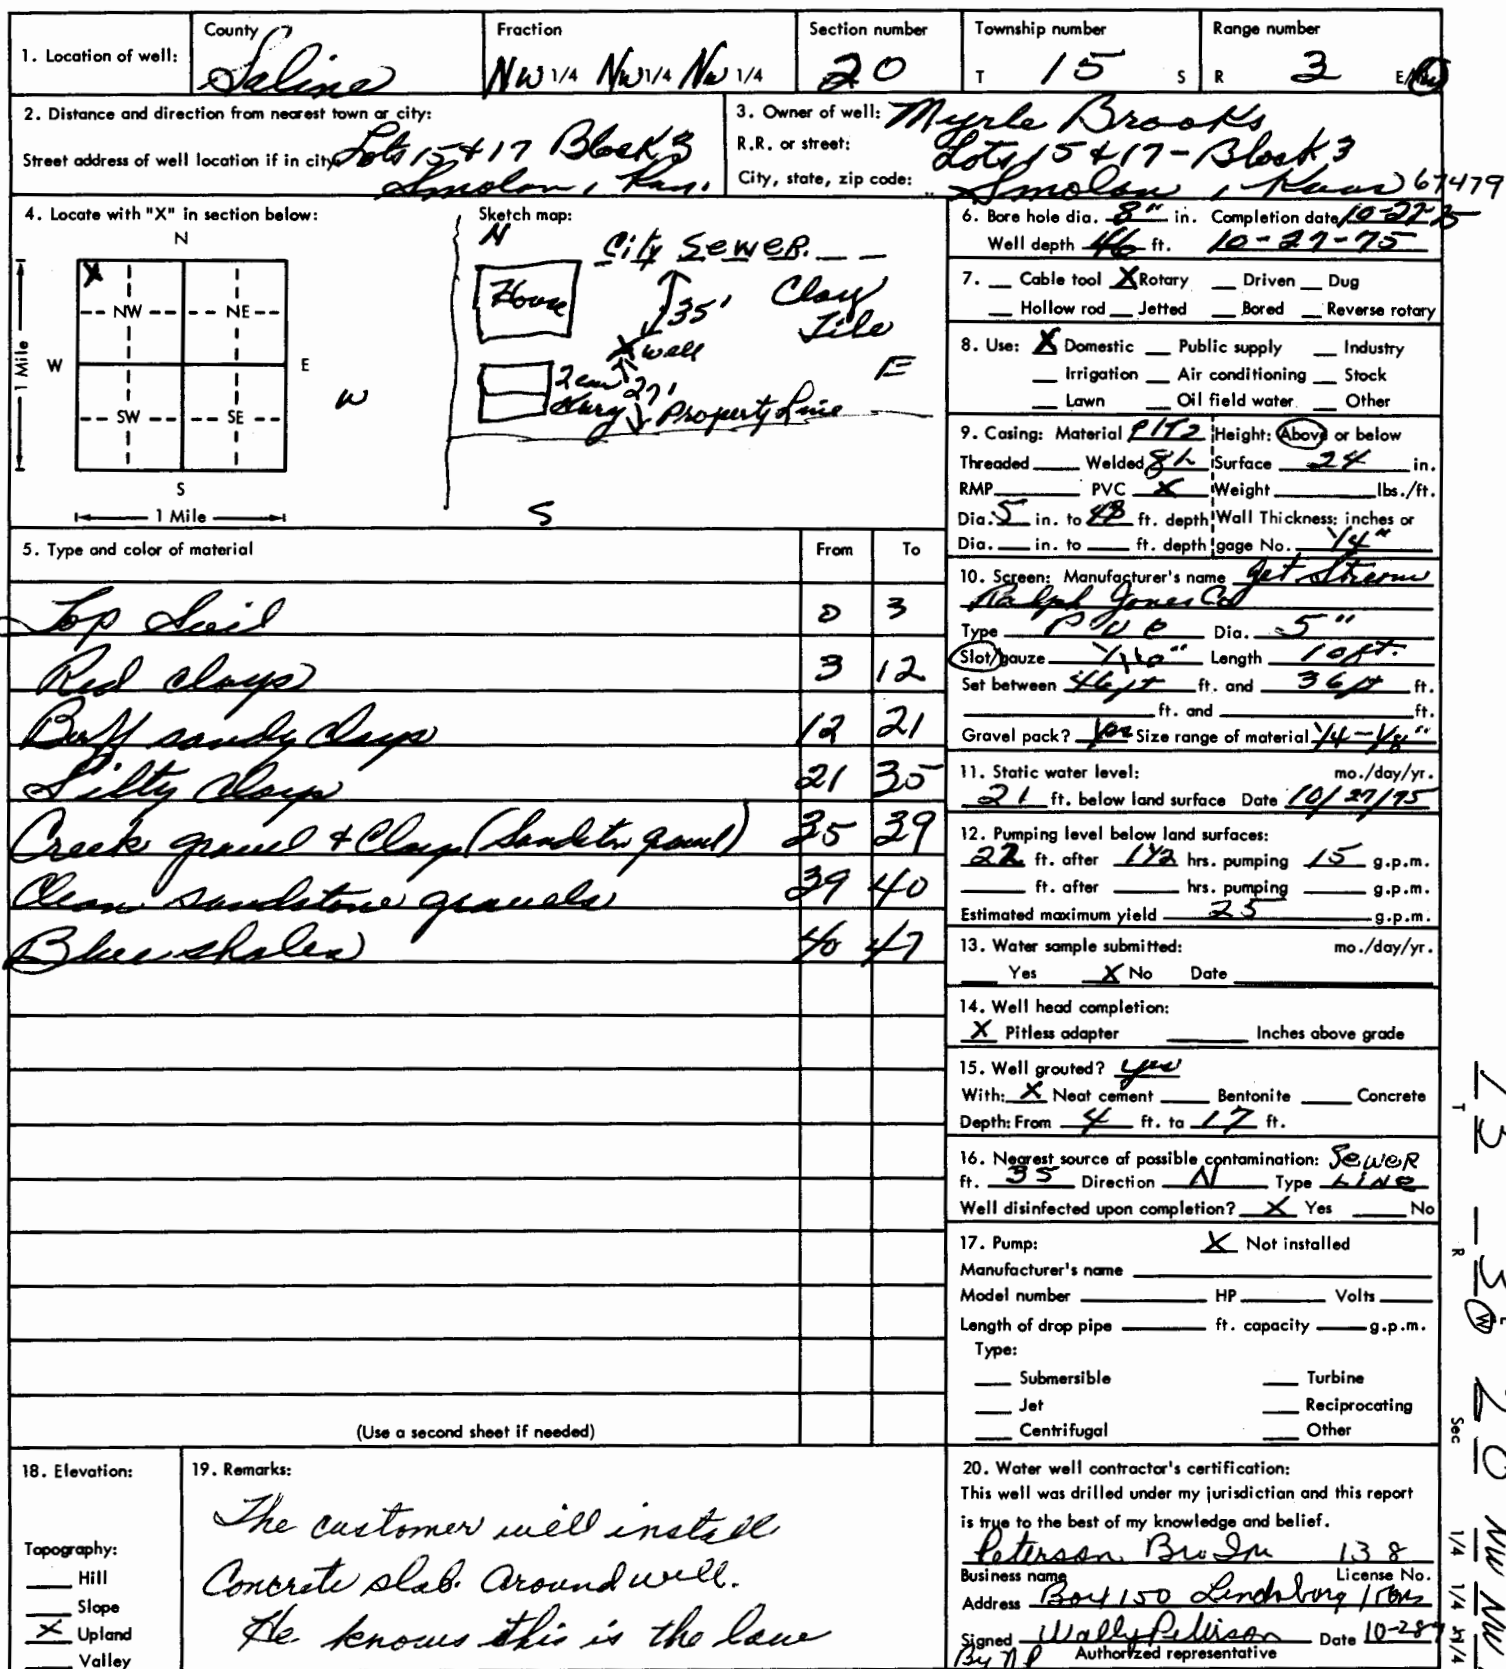 1. Location of well: County Saline Fraction NW 1/4 NW 1/4 NW 1/4 Section number 20 Township number T 15 S Range number R 3 E/W
2. Distance and direction from nearest town or city:
Street address of well location if in city: Lots 15 & 17 Block 3
Smolan, Kan.
3. Owner of well: Myrle Brooks
R.R. or street: Lots 15 & 17 - Block 3
City, state, zip code: Smolan, Kans 67479
4. Locate with "X" in section below:
N
X
NW NE
W E
SW SE
S
1 Mile
1 Mile
Sketch map:
N
City Sewer
House
35'
Clay
Tile
X well
2 car 27'
Property Line
W
E
S
5. Type and color of material From To
Top Soil 0 3
Red clays 3 12
Buff sandy clays 12 21
Silty clays 21 35
Creek gravel & Clay (Sandstn gravel) 35 39
Clean sandstone gravels 39 40
Blue shales 40 47
(Use a second sheet if needed)
6. Bore hole dia. 8" in. Completion date 10-27-75
Well depth 46 ft. 10-27-75
7. Cable tool X Rotary Driven Dug
Hollow rod Jetted Bored Reverse rotary
8. Use: X Domestic Public supply Industry
Irrigation Air conditioning Stock
Lawn Oil field water Other
9. Casing: Material Height: Above or below
Threaded Welded Surface 24 in.
RMP PVC X Weight lbs./ft.
Dia. 5 in. to 48 ft. depth Wall Thickness: inches or
Dia. in. to ft. depth gage No. 1/4"
10. Screen: Manufacturer's name Jet Stream
Ralph Jones Co
Type PVC Dia. 5"
Slot/gauze 1/16" Length 10 ft.
Set between 46 ft ft. and 36 ft ft.
ft. and ft.
Gravel pack? yes Size range of material 1/4 - 1/8"
11. Static water level: mo./day/yr.
21 ft. below land surface Date 10/27/75
12. Pumping level below land surfaces:
22 ft. after 1 1/2 hrs. pumping 15 g.p.m.
ft. after hrs. pumping g.p.m.
Estimated maximum yield 25 g.p.m.
13. Water sample submitted: mo./day/yr.
Yes X No Date
14. Well head completion:
X Pitless adapter Inches above grade
15. Well grouted? yes
With: X Neat cement Bentonite Concrete
Depth: From 4 ft. to 17 ft.
16. Nearest source of possible contamination: Sewer
ft. 35 Direction N Type Line
Well disinfected upon completion? X Yes No
17. Pump: X Not installed
Manufacturer's name
Model number HP Volts
Length of drop pipe ft. capacity g.p.m.
Type:
Submersible Turbine
Jet Reciprocating
Centrifugal Other
18. Elevation:
Topography:
Hill
Slope
X Upland
Valley
19. Remarks:
The customer will install
Concrete slab around well.
He knows this is the law
20. Water well contractor's certification:
This well was drilled under my jurisdiction and this report
is true to the best of my knowledge and belief.
Peterson Bro Inc 138
Business name License No.
Address Box 150 Lindsborg Kans
Signed Wally Peterson Date 10-28-7
By NP Authorized representative
T 15 R 3 E W Sec 20 1/4 NW 1/4 NW 1/4